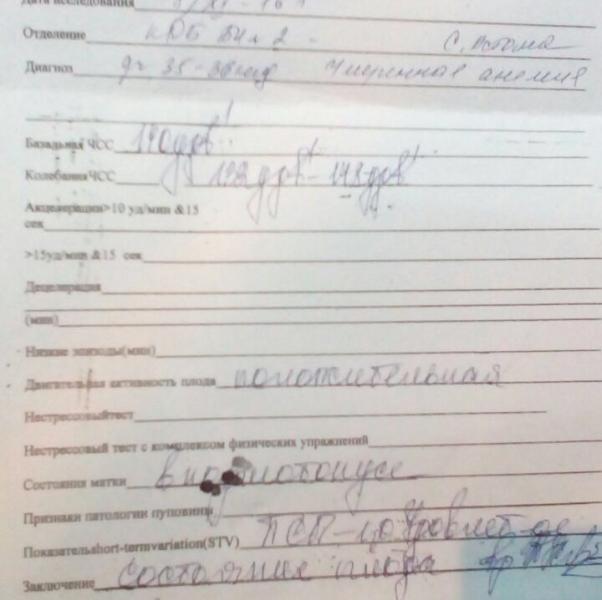 Дата исследования
Отделение 2 - С. Астана
Диагноз 35-36 нед Умеренная анемия
Базальная ЧСС 140 уд в 1'
КолебанияЧСС 132 уд в 1' - 148 уд в 1'
Акцелерации>10 уд/мин &15
сек
>15уд/мин &15 сек
Децелерация
(мин)
Низкие эпизоды(мин)
Двигательная активность плода положительная
Нестрессовыйтест
Нестрессовый тест с комплексом физических упражнений
Состояния матки в нормотонусе
Признаки патологии пуповины
Показательshort-termvariation(STV) ПСП-1,0
Заключение состояния плода